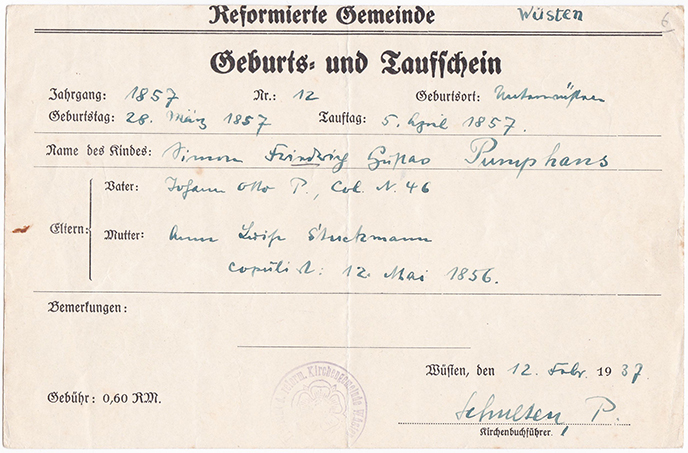 Reformierte Gemeinde Wüsten
6
Geburts- und Taufschein
Jahrgang: 1857 Nr.: 12 Geburtsort: Unterwüsten
Geburtstag: 28. März 1857 Tauftag: 5. April 1857.
Name des Kindes: Simon Friedrich Gustav Pumphans
Vater: Johann Otto P., Col. N. 46
Eltern:
Mutter: Anna Luise Stuckmann
copuliert: 12. Mai 1856.
Bemerkungen:
Wüsten, den 12. Febr. 1937.
Gebühr: 0,60 RM.
P.
Kirchenbuchführer.
Kirchengemeinde